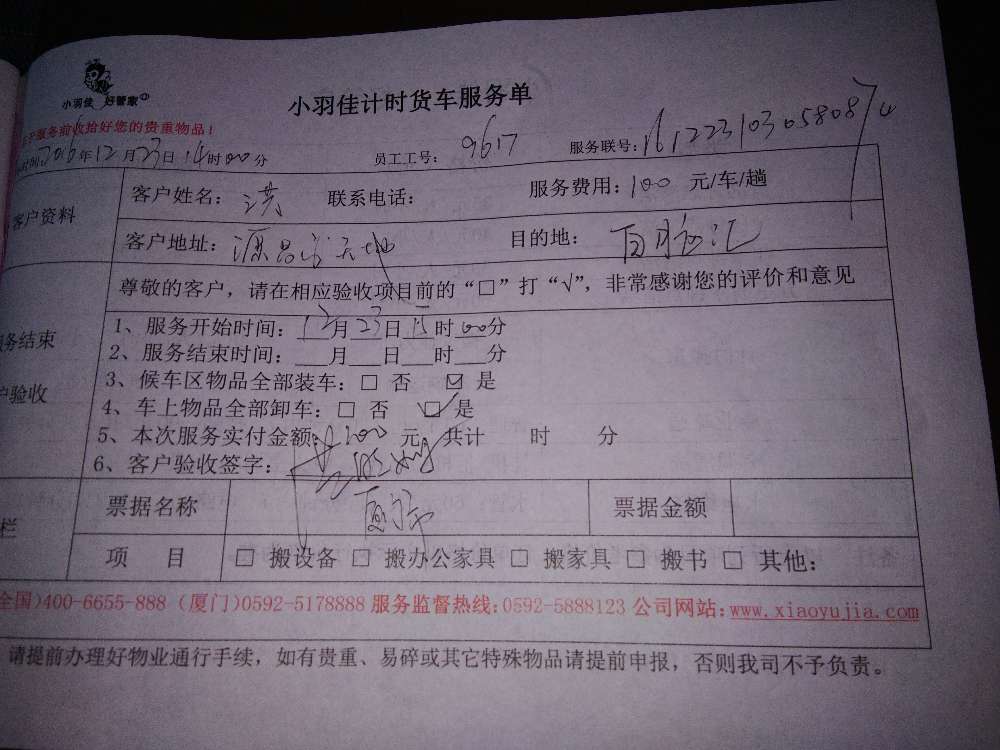 小羽佳 好管家
小羽佳计时货车服务单
服务前收拾好您的贵重物品！
2016年12月23日14时00分 员工工号：9617 服务联号：
客户资料
客户姓名：洪 联系电话： 服务费用：100 元/车/趟
客户地址：源昌 天地 目的地：百脑汇
尊敬的客户，请在相应验收项目前的“□”打“√”，非常感谢您的评价和意见
务结束
户验收
1、服务开始时间：12月23日15时00分
2、服务结束时间：___月___日___时___分
3、候车区物品全部装车：□ 否 ☑ 是
4、车上物品全部卸车：□ 否 ☑ 是
5、本次服务实付金额：200 元，共计 时 分
6、客户验收签字：
栏
票据名称 票据金额
项 目 □ 搬设备 □ 搬办公家具 □ 搬家具 □ 搬书 □ 其他：
全国)400-6655-888 (厦门)0592-5178888 服务监督热线:0592-5888123 公司网站:www.xiaoyujia.com
请提前办理好物业通行手续，如有贵重、易碎或其它特殊物品请提前申报，否则我司不予负责。